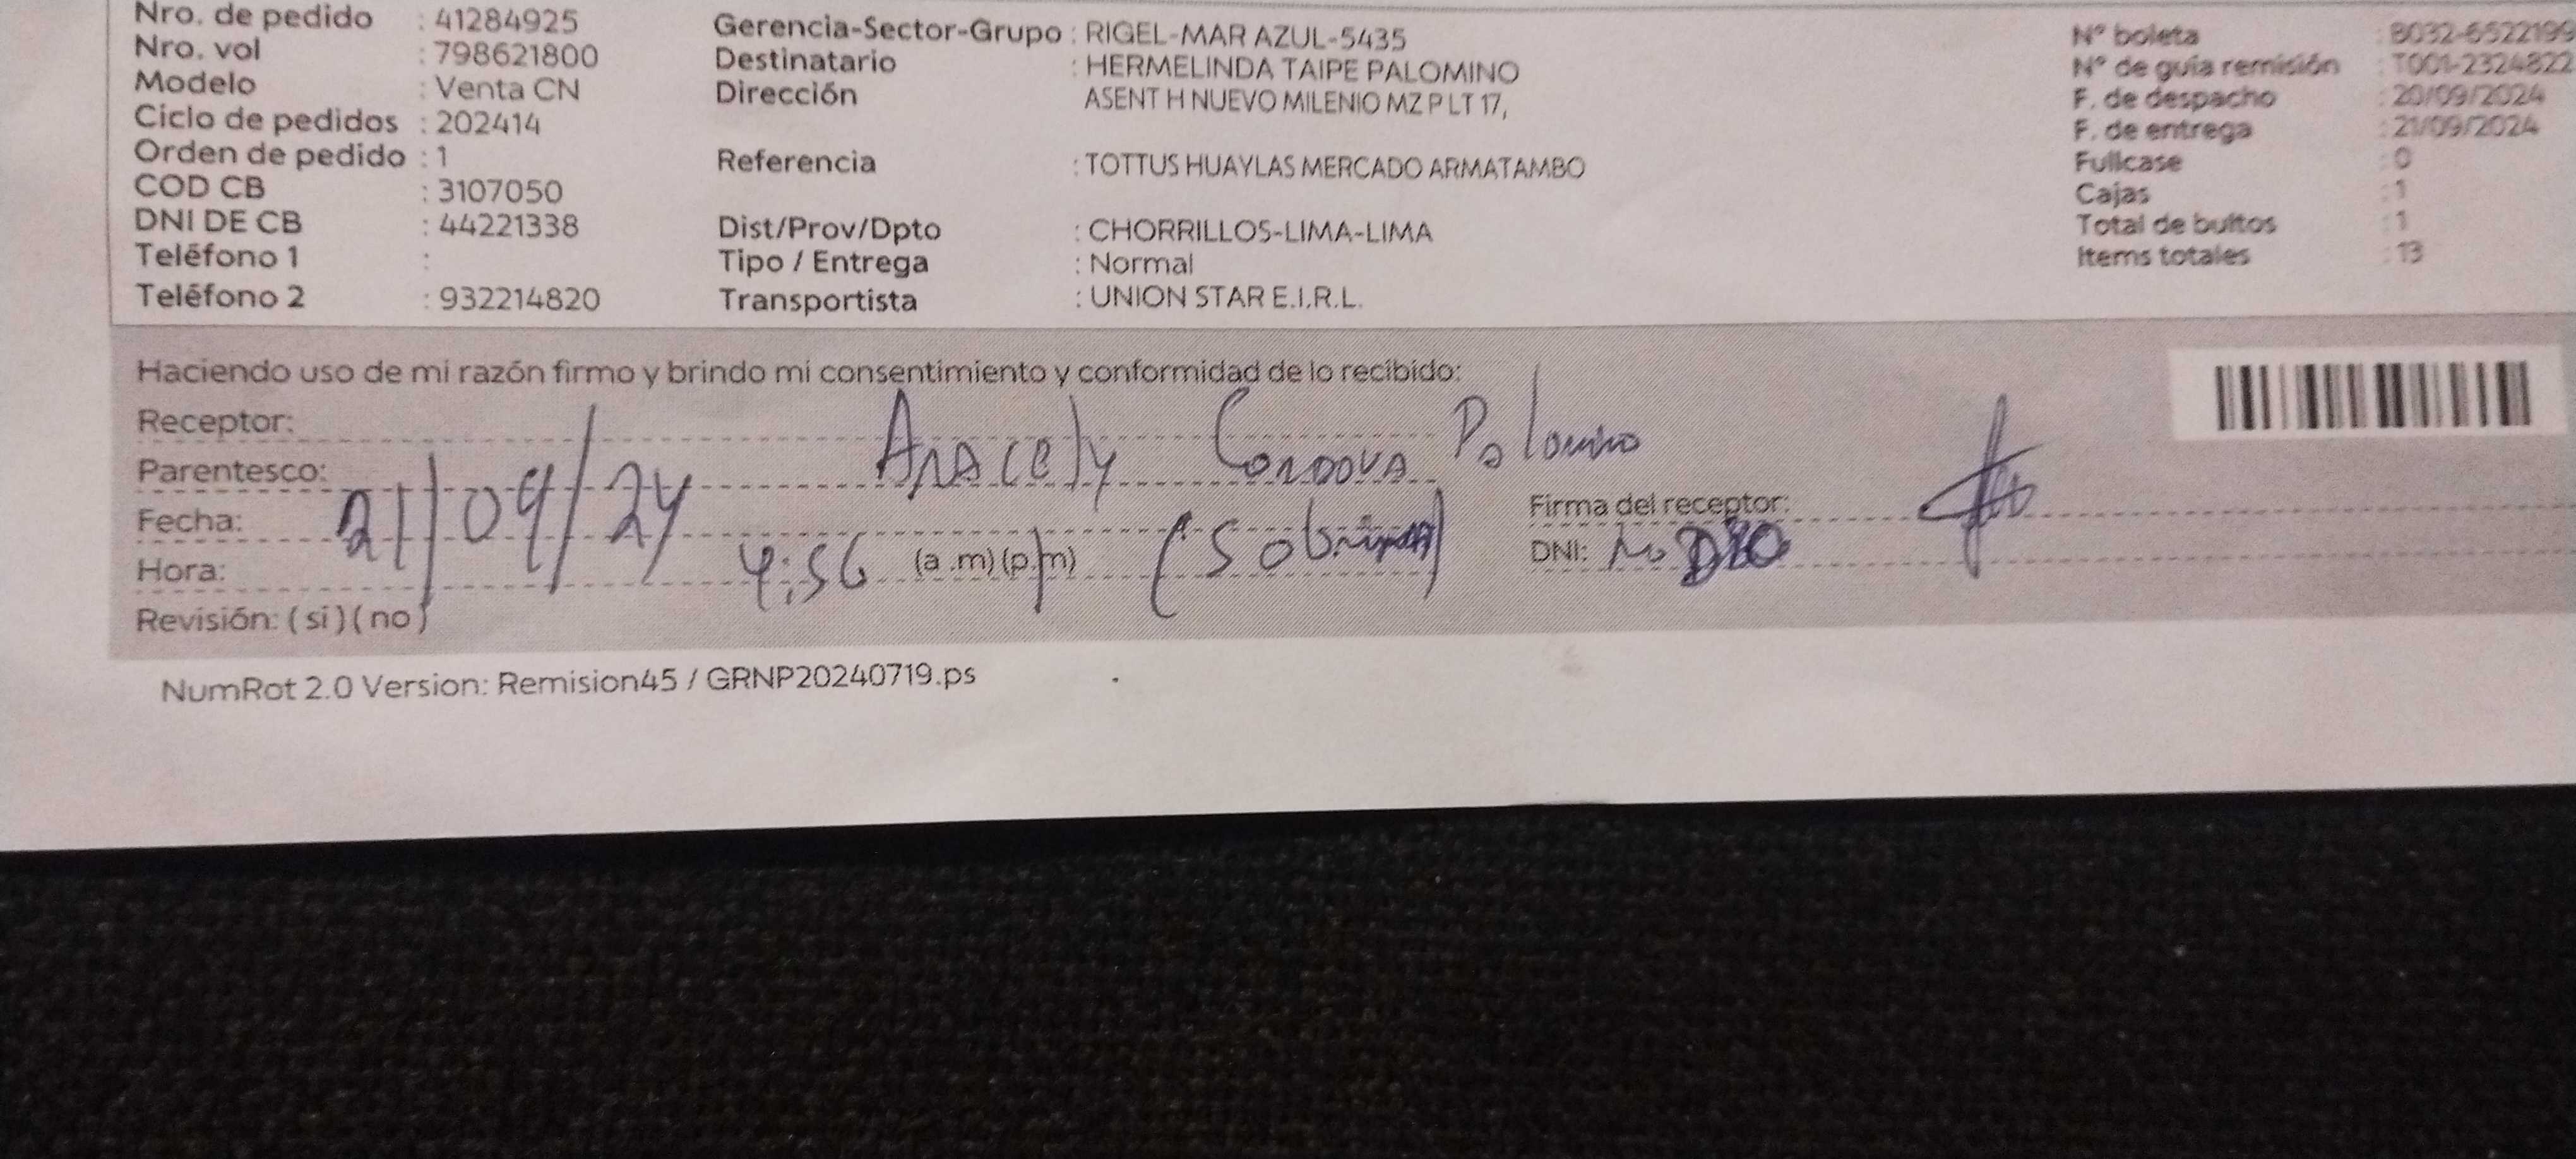 Nro. de pedido : 41284925
Nro. vol : 798621800
Modelo : Venta CN
Ciclo de pedidos : 202414
Orden de pedido : 1
COD CB : 3107050
DNI DE CB : 44221338
Teléfono 1 :
Teléfono 2 : 932214820
Gerencia-Sector-Grupo : RIGEL-MAR AZUL-5435
Destinatario : HERMELINDA TAIPE PALOMINO
Dirección ASENT H NUEVO MILENIO MZ P LT 17,
Referencia : TOTTUS HUAYLAS MERCADO ARMATAMBO
Dist/Prov/Dpto : CHORRILLOS-LIMA-LIMA
Tipo / Entrega : Normal
Transportista : UNION STAR E.I.R.L.
Nº boleta : B032-6522199
Nº de guía remisión : T001-2324822
F. de despacho : 20/09/2024
F. de entrega : 21/09/2024
Fullcase : 0
Cajas : 1
Total de bultos : 1
Items totales : 13
Haciendo uso de mi razón firmo y brindo mi consentimiento y conformidad de lo recibido:
Receptor: Aracely Cordova Palomino
Parentesco:
Fecha: 21/09/24
Hora: 4:56 (a .m) (p.m) (Sobrina)
Revisión: ( si ) ( no )
Firma del receptor:
DNI: No DIO
NumRot 2.0 Version: Remision45 / GRNP20240719.ps